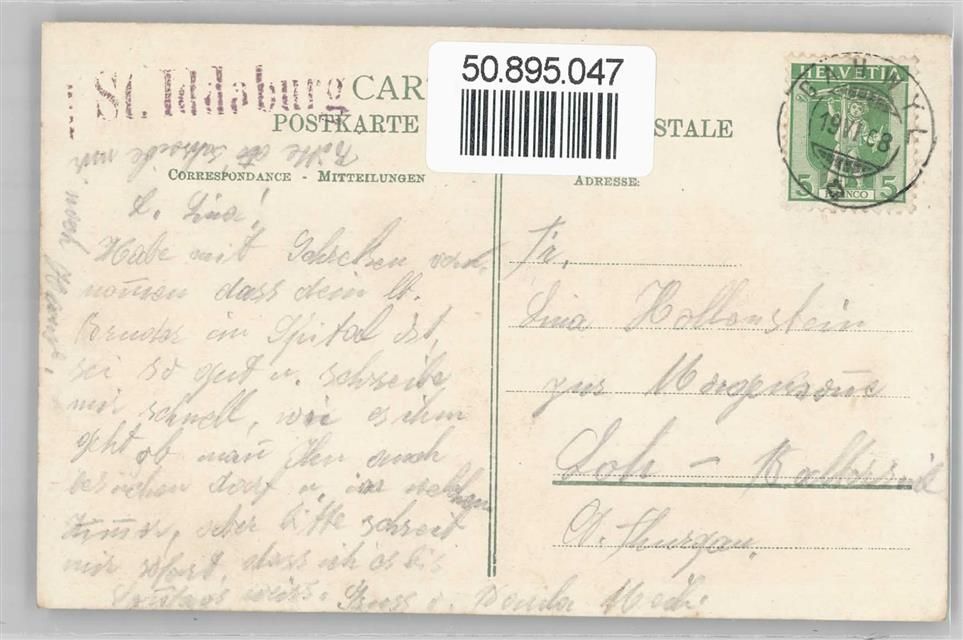 50.895.047
St. Iddaburg
CAR
POSTKARTE
STALE
HELVETIA
GÄHWYL
19.VI.08
5 FRANCO 5
Bitte schreibe mir
noch
CORRESPONDANCE - MITTEILUNGEN
ADRESSE:
L. Lina!
Habe mit Schrecken ver-
nom̄en dass dein lb.
Bruder im Spital ist,
sei so gut u. schreibe
mir schnell, wie es ihm
geht ob man̄ Ihn auch
besuchen darf u. in welchem
Zim̄er, aber bitte schreib
mir sofort, dass ich es bis
Son̄tags weiss. Gruss u.
Fr.
Lina Hollenstein
zur Morgenson̄e
Loh -
Ct. Thurgau.